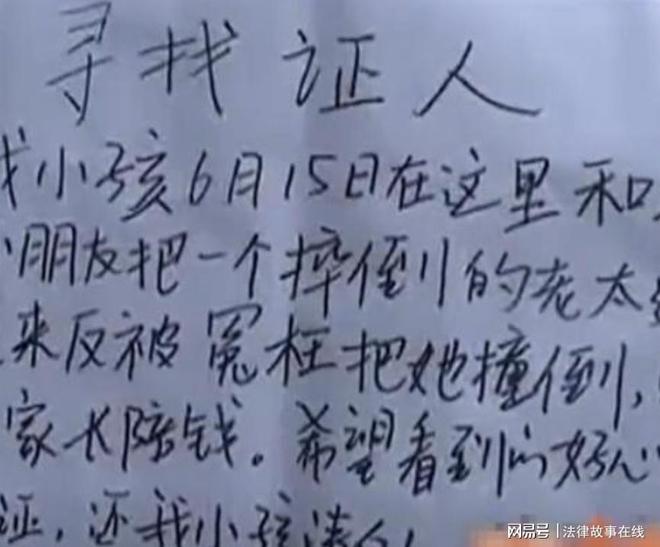 寻找证人
我小孩6月15日在这里和
朋友把一个摔倒的老太
来反被冤枉把她撞倒,
家长陪钱。希望看到的好心
证,还我小孩清
网易号 | 法律故事在线